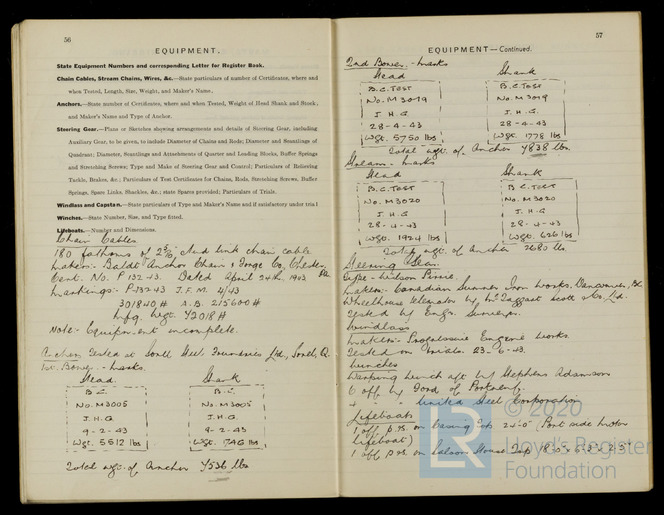 56
EQUIPMENT.
State Equipment Numbers and corresponding Letter for Register Book.
Chain Cables, Stream Chains, Wires, &c.—State particulars of number of Certificates, where and
when Tested, Length, Size, Weight, and Maker's Name.
Anchors.—State number of Certificates, where and when Tested, Weight of Head Shank and Stock,
and Maker's Name and Type of Anchor.
Steering Gear.—Plans or Sketches showing arrangements and details of Steering Gear, including
Auxiliary Gear, to be given, to include Diameter of Chains and Rods; Diameter and Scantlings of
Quadrant; Diameter, Scantlings and Attachments of Quarter and Leading Blocks, Buffer Springs
and Stretching Screws; Type and Make of Steering Gear and Control; Particulars of Relieving
Tackle, Brakes, &c.; Particulars of Test Certificates for Chains, Rods, Stretching Screws, Buffer
Springs, Spare Links, Shackles, &c.; state Spares provided; Particulars of Trials.
Windlass and Capstan.—State particulars of Type and Makers Name and if satisfactory under trial
Winches.—State Number, Size, and Type fitted.
Lifeboats.—Number and Dimensions.
Chain Cables
180 fathoms of stud link chain cable
Makers:- Baldt Anchor Chain & Forge Co, Chester,
Cert. No. P 132-43. Dated April 24th, 1943
Markings:- P.132-43 J.F.M. 4/43
301840# A.B. 215600#
Mfg. Wgt.
Note:- Equipment incomplete.
Anchors Tested at Sorell Steel Foundries Ltd., Sorel, Q.
1st. Bower. - Marks.
Head. Shank
B.C. B.C.
No. M3005 No. M3005
J.H.G. J.H.G.
9-2-43 9-2-43
Wgt. 5512 lbs Wgt.
Total wgt. of Anchor 7536 lbs
57
EQUIPMENT—Continued.
2nd Bower. - Marks
Head Shank
B.C. Test B.C. Test
No. M3019 No. M3019
J.H.G. J.H.G.
28-4-43 28-4-43
Wgt. 5750 lbs Wgt. 1778 lbs
Total wgt. of Anchor
Stream - Marks
Head Shank
B.C. Test B.C. Test
No. M3020 No. M3020
J.H.G J.H.G
28-4-43 28-4-43
Wgt. 1924 lbs Wgt. 626 lbs
Total wgt. of Anchor 2680 lbs
Steering Gear.
Type - Wilson Pirrie.
Makers:- Canadian Sumner Iron Works, Vancouver,
Wheelhouse telemotor by McTaggart Scott & Co., Ltd.
Tested by Engr. Surveyor.
Windlass
Makers:- Progressive Engine Works.
Tested on trials 23-6-43.
Winches
Warping winch aft by Stephens Adamson
6 off by Ford of
4 " " United Steel Corporation
Lifeboats
1 off p.&s. on Casing Top 24'-0" (Port side motor
lifeboat)
1 off p.&s. on Saloon House Top
LR
© 2020
Lloyd's Register
Foundation